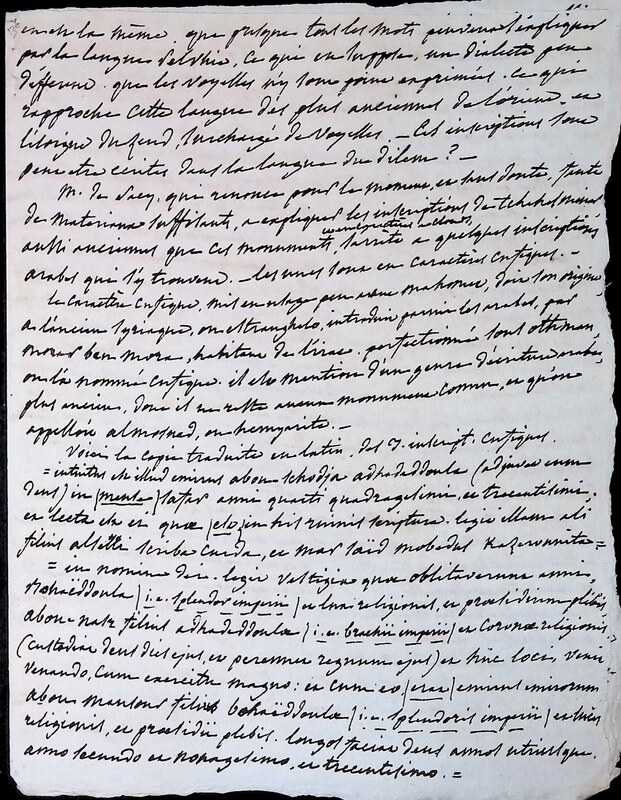 la même, que presque tous les mots peuvent s'expliquer
par la langue pelvhie, ce qui en suppose, un dialecte peu
différent. que les voyelles n'y sont point exprimées. ce qui
rapproche cette langue des plus anciennes de l'orient. et
l'éloigne du zend, surchargé de voyelles. — Ces inscriptions sont
peut etre écrites dans la langue du dilem ? —
M. de Sacy, qui renonce pour le moment, et sans doute, faute
de materiaux suffisants, a expliquer les inscriptions de tchehelminar
en caractères a clous,
aussi anciennes que ces monuments, s'arrete a quelques inscriptions
arabes qui s'y trouvent. — les unes sont en caractères cufiques. —
le caractère cufique, mis en usage peu avant mahomet, doit son origine
a l'ancien syriaque, ou estranghelo, introduit parmi les arabes, par
morar ben mora, habitant de l'irac. perfectionné sous othman,
on l'a nommé cufique. il est mention d'un genre d'écriture arabe
plus ancien, dont il ne reste aucun monument connu, et qu'on
appelloit almosnad, ou hemyarite. —
Voici la copie traduite en latin, des 7. inscript. cufiques.
= intuitus est illud emirus abou schodja adhadeddoula (adjuvet eum
deus) in | mense | safar anni quarti quadragesimi, et trecentesimi.
et lecta est ex quæ | est | in his ruinis scriptura. legit illam ali
filius scriba carda, et mar saïd mobedus Kazerounita =
= in nomine dei. legit vestigia quæ oblitaverunt anni,
bohaëddoula | i.e. splendor imperii | et lux religionis, et præsidium plebis
abou-nasr filius adhadeddoulæ | i.e. brachii imperii | et coronæ religionis
(custodiat deus dies ejus, et perennet regnum ejus) et huc loci, venit
venando, cum exercitu magno : et cum eo | erat | emirus emirorum
abou mansour filius bohaëddoulæ | i.e. splendoris imperii | et lucis
religionis, et præsidii plebis. longos faciat deus annos utriusque.
anno secundo et nonagesimo, et trecentesimo. =